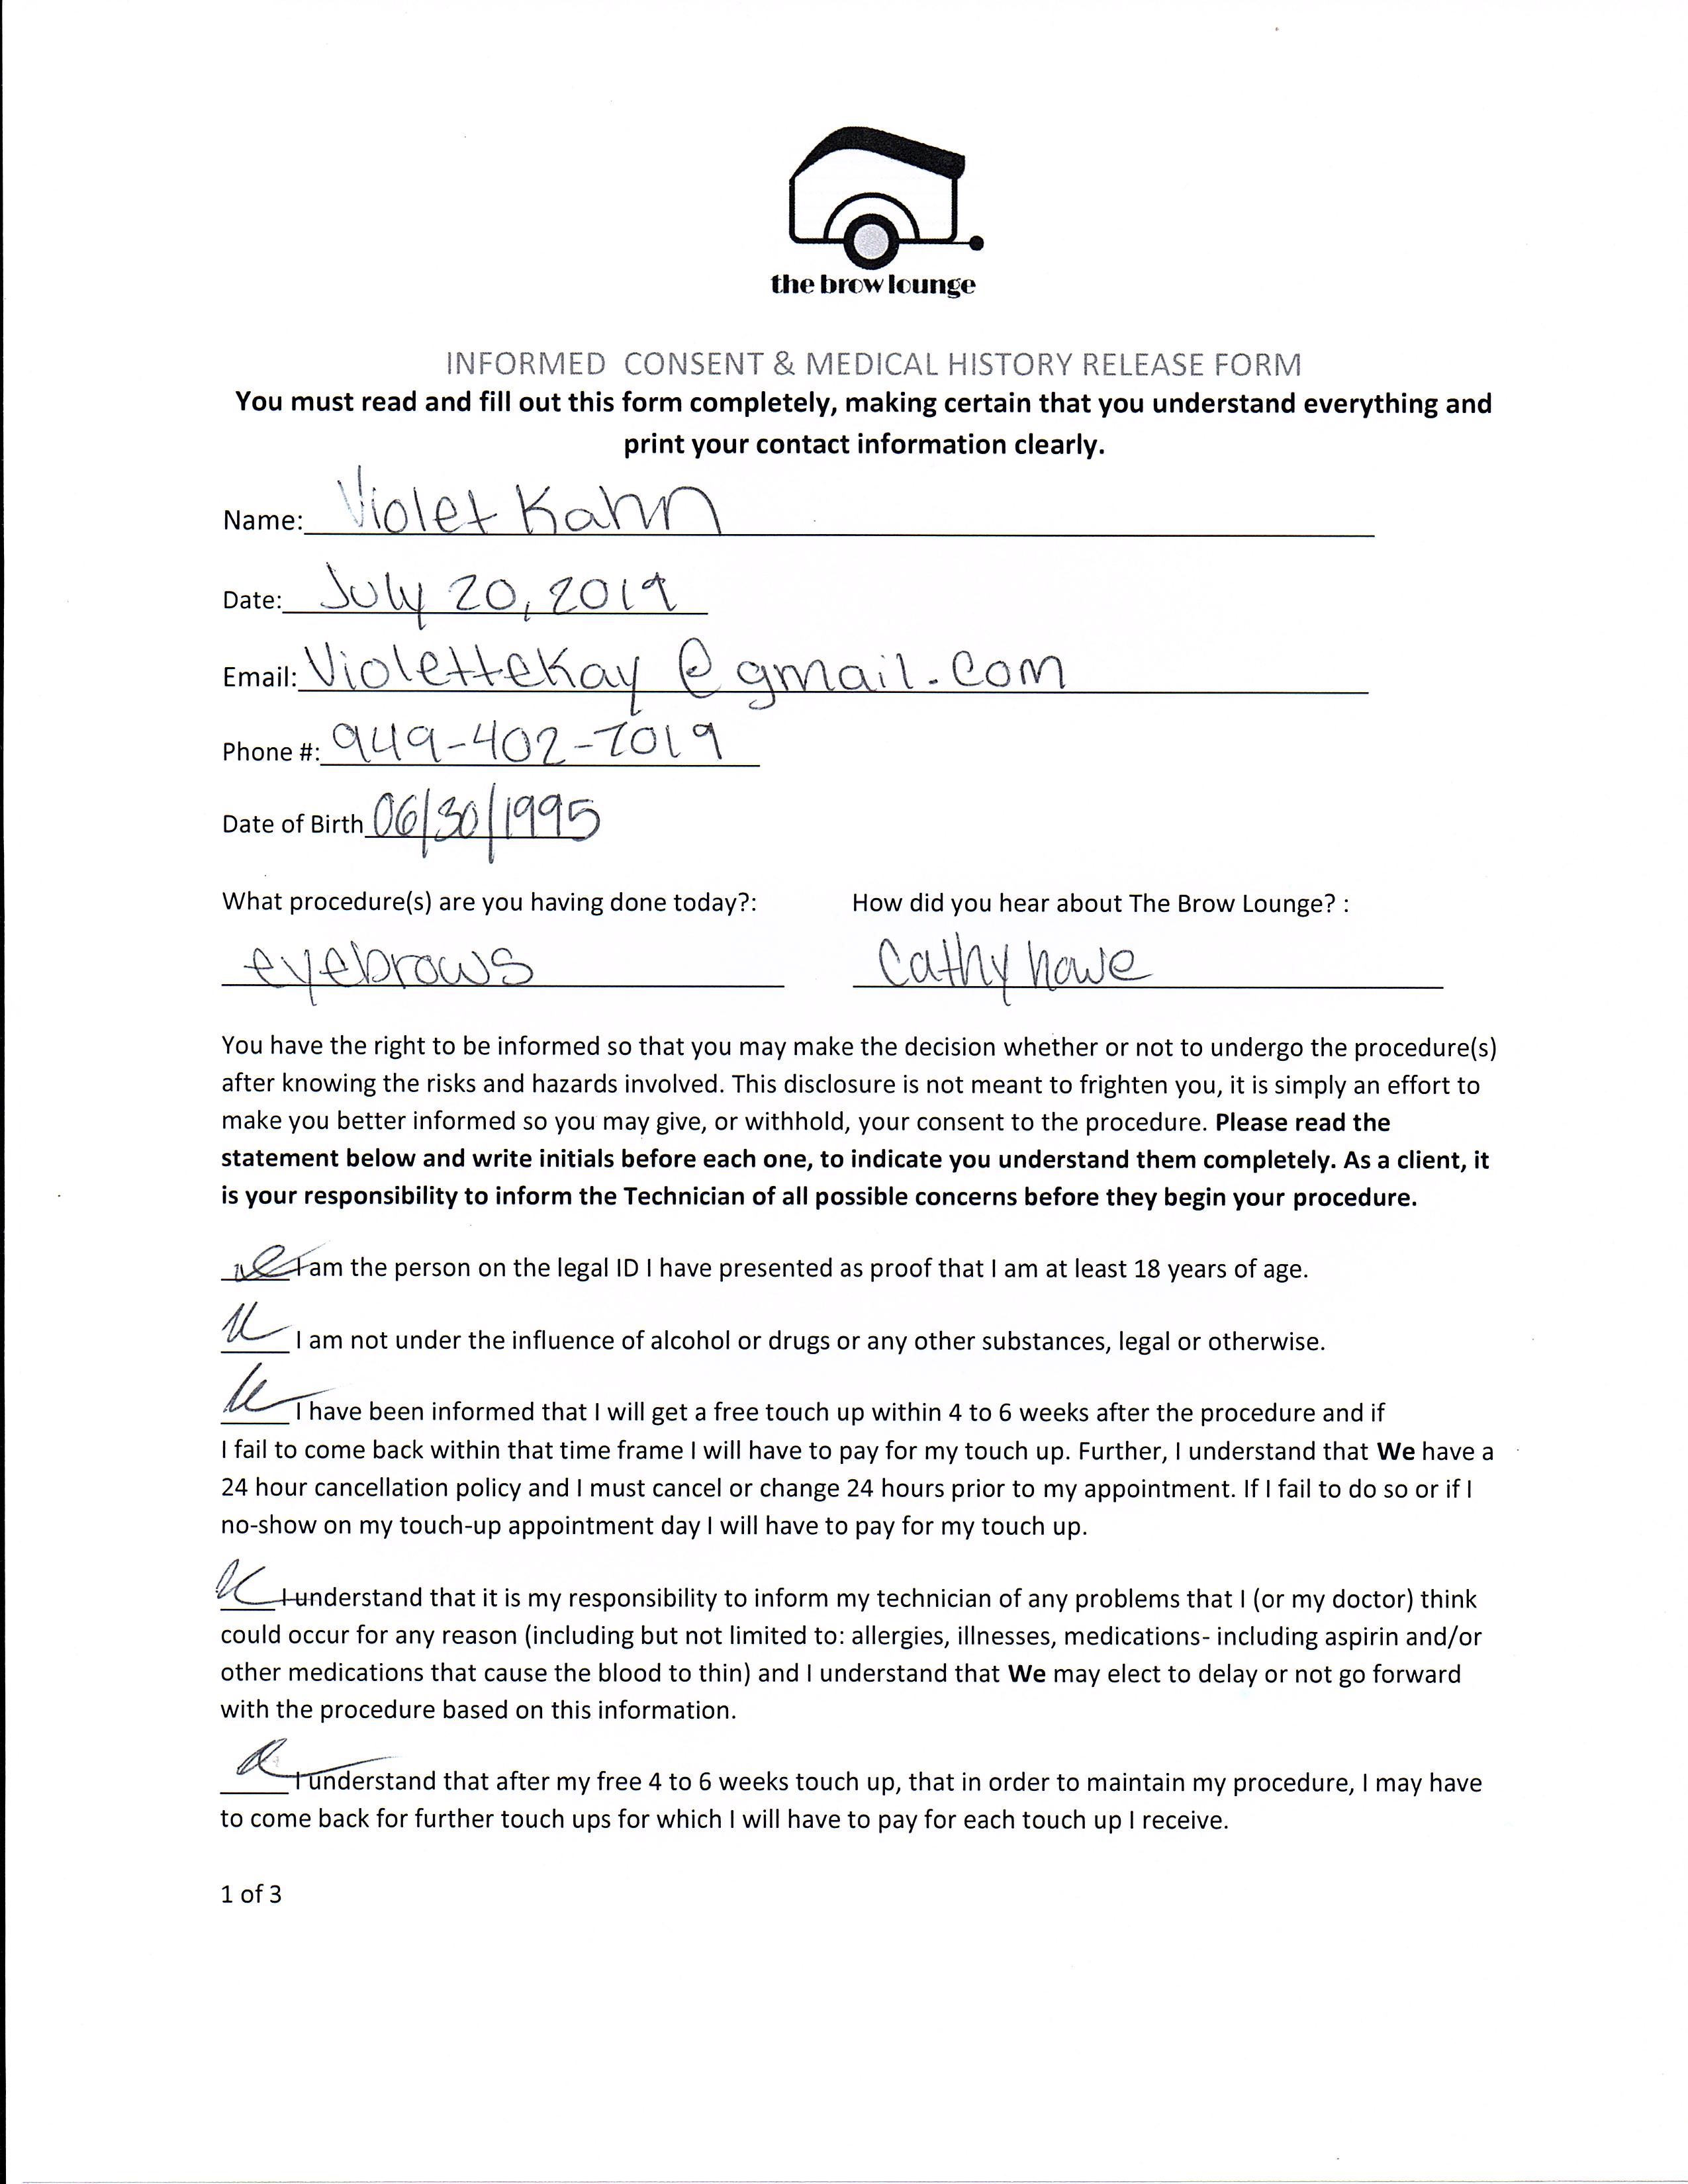 the brow lounge
INFORMED CONSENT & MEDICAL HISTORY RELEASE FORM
You must read and fill out this form completely, making certain that you understand everything and
print your contact information clearly.
Name: Violet Kahn
Date: July 20, 2019
Email: Violettekay @gmail.com
Phone #: 949-402-7019
Date of Birth 06/30/1995
What procedure(s) are you having done today?: How did you hear about The Brow Lounge? :
eyebrows Cathy howe
You have the right to be informed so that you may make the decision whether or not to undergo the procedure(s)
after knowing the risks and hazards involved. This disclosure is not meant to frighten you, it is simply an effort to
make you better informed so you may give, or withhold, your consent to the procedure. Please read the
statement below and write initials before each one, to indicate you understand them completely. As a client, it
is your responsibility to inform the Technician of all possible concerns before they begin your procedure.
I am the person on the legal ID I have presented as proof that I am at least 18 years of age.
I am not under the influence of alcohol or drugs or any other substances, legal or otherwise.
I have been informed that I will get a free touch up within 4 to 6 weeks after the procedure and if
I fail to come back within that time frame I will have to pay for my touch up. Further, I understand that We have a
24 hour cancellation policy and I must cancel or change 24 hours prior to my appointment. If I fail to do so or if I
no-show on my touch-up appointment day I will have to pay for my touch up.
I understand that it is my responsibility to inform my technician of any problems that I (or my doctor) think
could occur for any reason (including but not limited to: allergies, illnesses, medications- including aspirin and/or
other medications that cause the blood to thin) and I understand that We may elect to delay or not go forward
with the procedure based on this information.
I understand that after my free 4 to 6 weeks touch up, that in order to maintain my procedure, I may have
to come back for further touch ups for which I will have to pay for each touch up I receive.
1 of 3